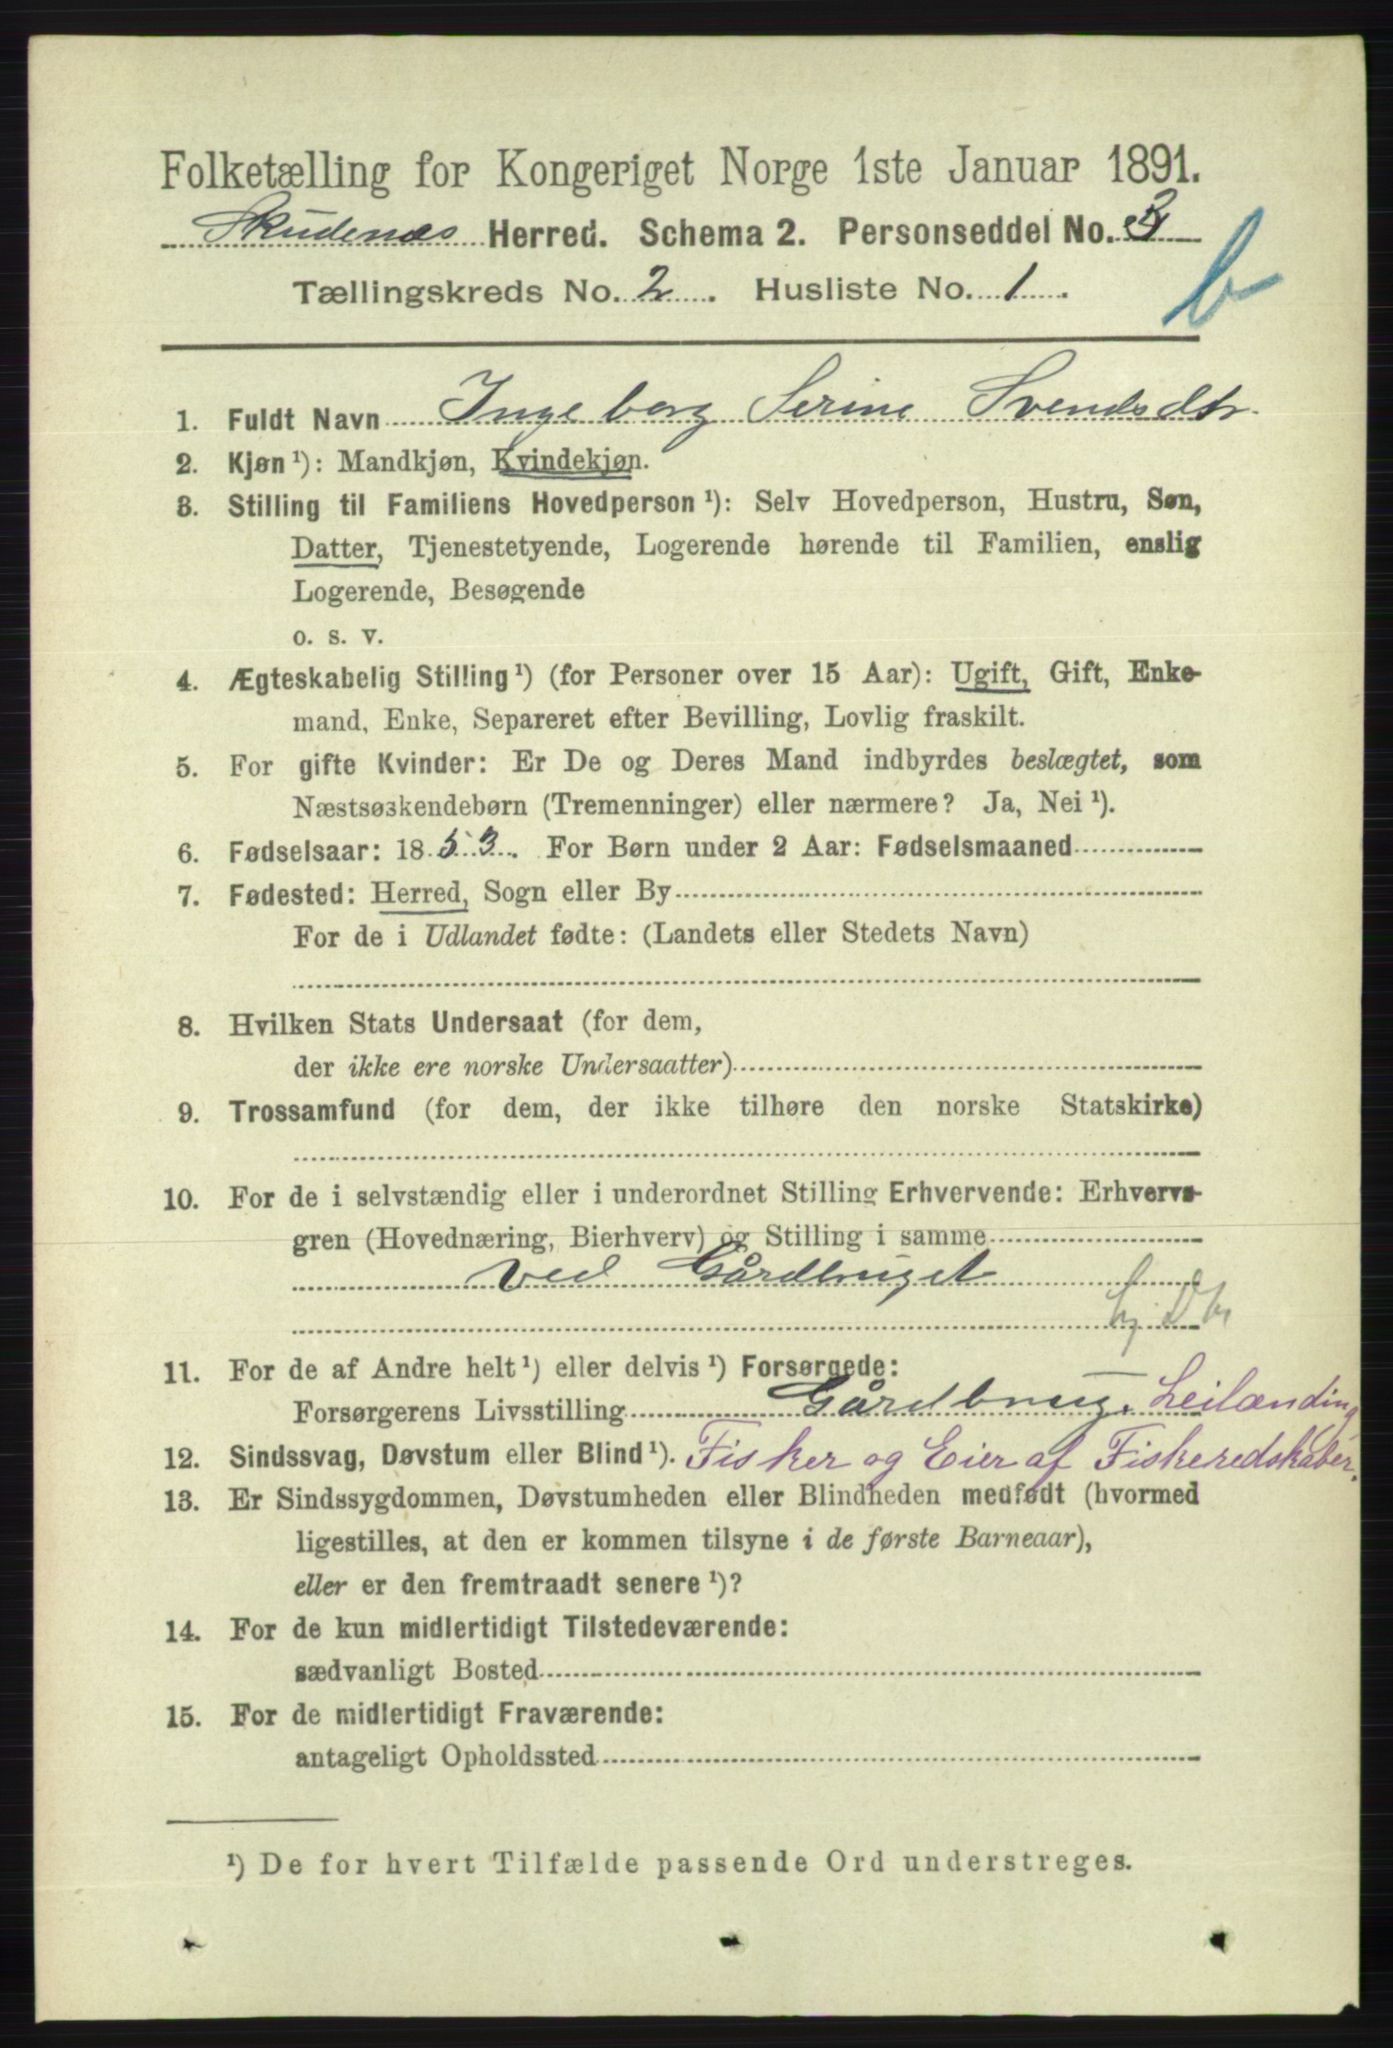 Folketælling for Kongeriget Norge 1ste Januar 1891.
Skudenæs Herred. Schema 2. Personseddel No. 3
Tællingskreds No. 2. Husliste No. 1.
b
1. Fuldt Navn Ingeborg Serine Svendsdtr.
2. Kjøn ¹): Mandkjøn, Kvindekjøn.
3. Stilling til Familiens Hovedperson ¹): Selv Hovedperson, Hustru, Søn,
Datter, Tjenestetyende, Logerende hørende til Familien, enslig
Logerende, Besøgende
o. s. v.
4. Ægteskabelig Stilling ¹) (for Personer over 15 Aar): Ugift, Gift, Enke-
mand, Enke, Separeret efter Bevilling, Lovlig fraskilt.
5. For gifte Kvinder: Er De og Deres Mand indbyrdes beslægtet, som
Næstsøskendebørn (Tremenninger) eller nærmere? Ja, Nei ¹).
6. Fødselsaar: 1853. For Børn under 2 Aar: Fødselsmaaned
7. Fødested: Herred, Sogn eller By
For de i Udlandet fødte: (Landets eller Stedets Navn)
8. Hvilken Stats Undersaat (for dem,
der ikke ere norske Undersaatter)
9. Trossamfund (for dem, der ikke tilhøre den norske Statskirke)
10. For de i selvstændig eller i underordnet Stilling Erhvervende: Erhvervs-
gren (Hovednæring, Bierhverv) og Stilling i samme
ved Gårdbruget
11. For de af Andre helt ¹) eller delvis ¹) Forsørgede:
Forsørgerens Livsstilling Gårdbrug, Leilænding
12. Sindssvag, Døvstum eller Blind ¹). Fisker og Eier af Fiskeredskaber.
13. Er Sindssygdommen, Døvstumheden eller Blindheden medfødt (hvormed
ligestilles, at den er kommen tilsyne i de første Barneaar),
eller er den fremtraadt senere ¹)?
14. For de kun midlertidigt Tilstedeværende:
sædvanligt Bosted
15. For de midlertidigt Fraværende:
antageligt Opholdssted
¹) De for hvert Tilfælde passende Ord understreges.